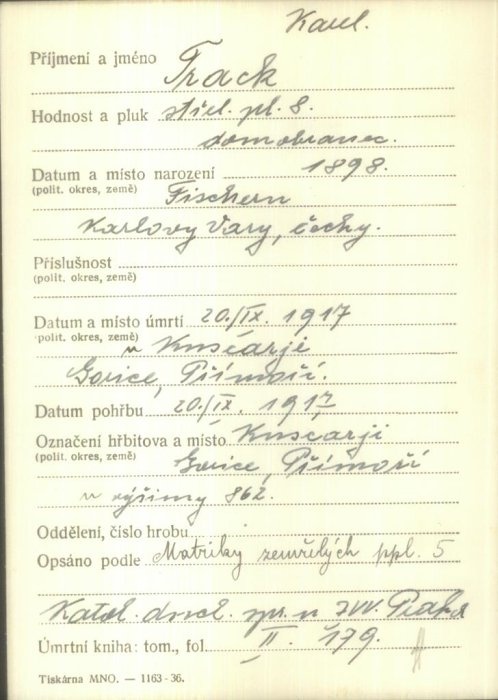 Karel.
Příjmení a jméno Track
Hodnost a pluk střel. pl. 8.
domobranec.
Datum a místo narození 1898.
(polit. okres, země) Fischern
Karlovy Vary, Čechy.
Příslušnost
(polit. okres, země)
Datum a místo úmrtí 20./IX. 1917
(polit. okres, země) u Kuscarji
Gorice, Přímoří.
Datum pohřbu 20./IX. 1917
Označení hřbitova a místo Kuscarji
(polit. okres, země) Gorice, Přímoří
u výšiny 862.
Oddělení, číslo hrobu
Opsáno podle Matriky zemřelých ppl. 5
Katol. duch. spr. u ZVV. Praha
Úmrtní kniha: tom., fol. II. 179.
Tiskárna MNO. — 1163-36.